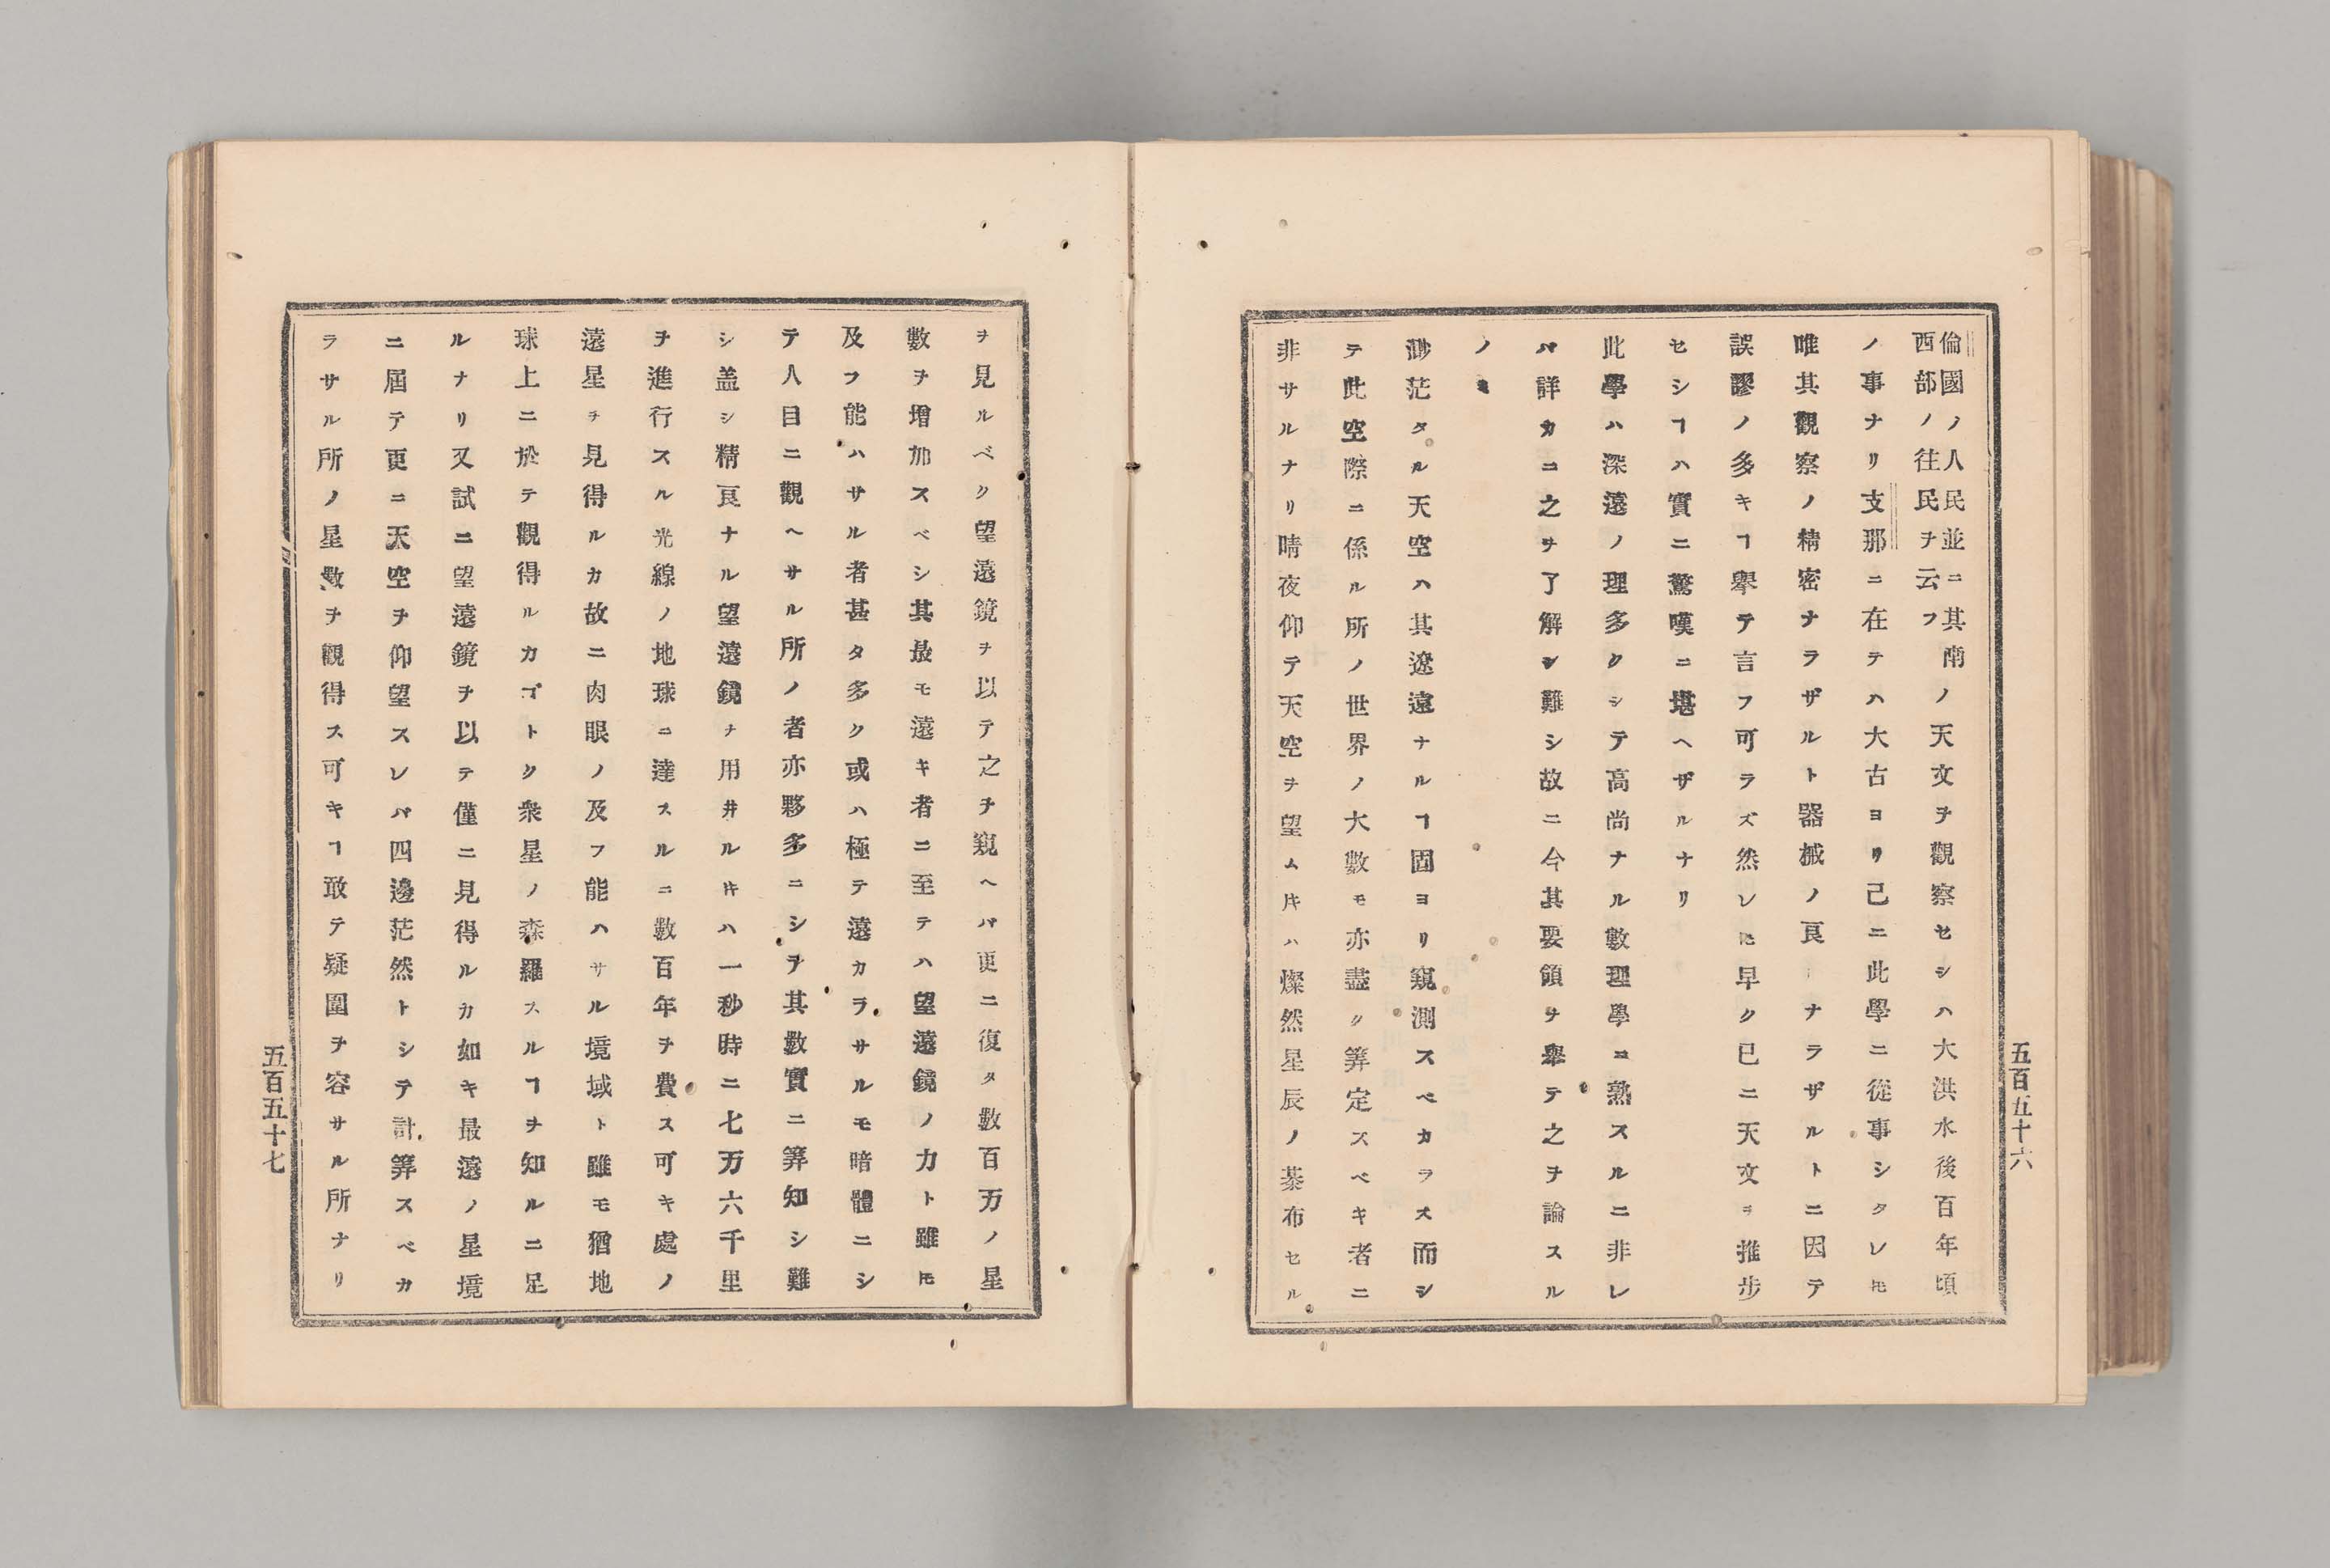 倫國ノ人民並ニ其南
西部ノ往民ヲ云フ
ノ天文ヲ觀察セシハ大洪水後百年頃
ノ事ナリ支那ニ在テハ大古ヨリ己ニ此學ニ從事シタレ𪜈
唯其觀察ノ精密ナラザルト器械ノ良ナラザルトニ因テ
誤謬ノ多キヿ舉テ言フ可ラズ然レ𪜈早ク已ニ天文ヲ推步
セシヿハ實ニ驚嘆ニ堪ヘザルナリ
此學ハ深遠ノ理多クシテ高尚ナル數理學ニ熟スルニ非レ
バ詳カニ之ヲ了解シ難シ故ニ今其要領ヲ舉テ之ヲ論スル
ノミ
渺茫タル天空ハ其遼遠ナルヿ固ヨリ窺測スベカラス而シ
テ此空際ニ係ル所ノ世界ノ大數モ亦盡ク筭定スベキ者ニ
非サルナリ晴夜仰テ天空ヲ望ムㇳキハ燦然星辰ノ棊布セル
五百五十六
ヲ見ルベク望遠鏡ヲ以テ之ヲ窺ヘバ更ニ復タ數百万ノ星
數ヲ增加スベシ其最モ遠キ者ニ至テハ望遠鏡ノ力ト雖𪜈
及フ能ハサル者甚タ多ク或ハ極テ遠カラサルモ暗體ニシ
テ人目ニ觀ヘサル所ノ者亦夥多ニシヲ其數實ニ筭知シ難
シ盖シ精良ナル望遠鏡ヲ用井ルㇳキハ一秒時ニ七万六千里
ヲ進行スル光線ノ地球ニ達スルニ數百年ヲ費ス可キ處ノ
遠星ヲ見得ルカ故ニ肉眼ノ及フ能ハサル境域ト雖モ猶地
球上ニ於テ觀得ルカゴトク衆星ノ森羅スルヿヲ知ルニ足
ルナリ又試ニ望遠鏡ヲ以テ僅ニ見得ルカ如キ最遠ノ星境
ニ屆テ更ニ天空ヲ仰望スレバ四邊茫然トシテ計筭スベカ
ラサル所ノ星數ヲ觀得ス可キヿ敢テ疑圍ヲ容サル所ナリ
五百五十七